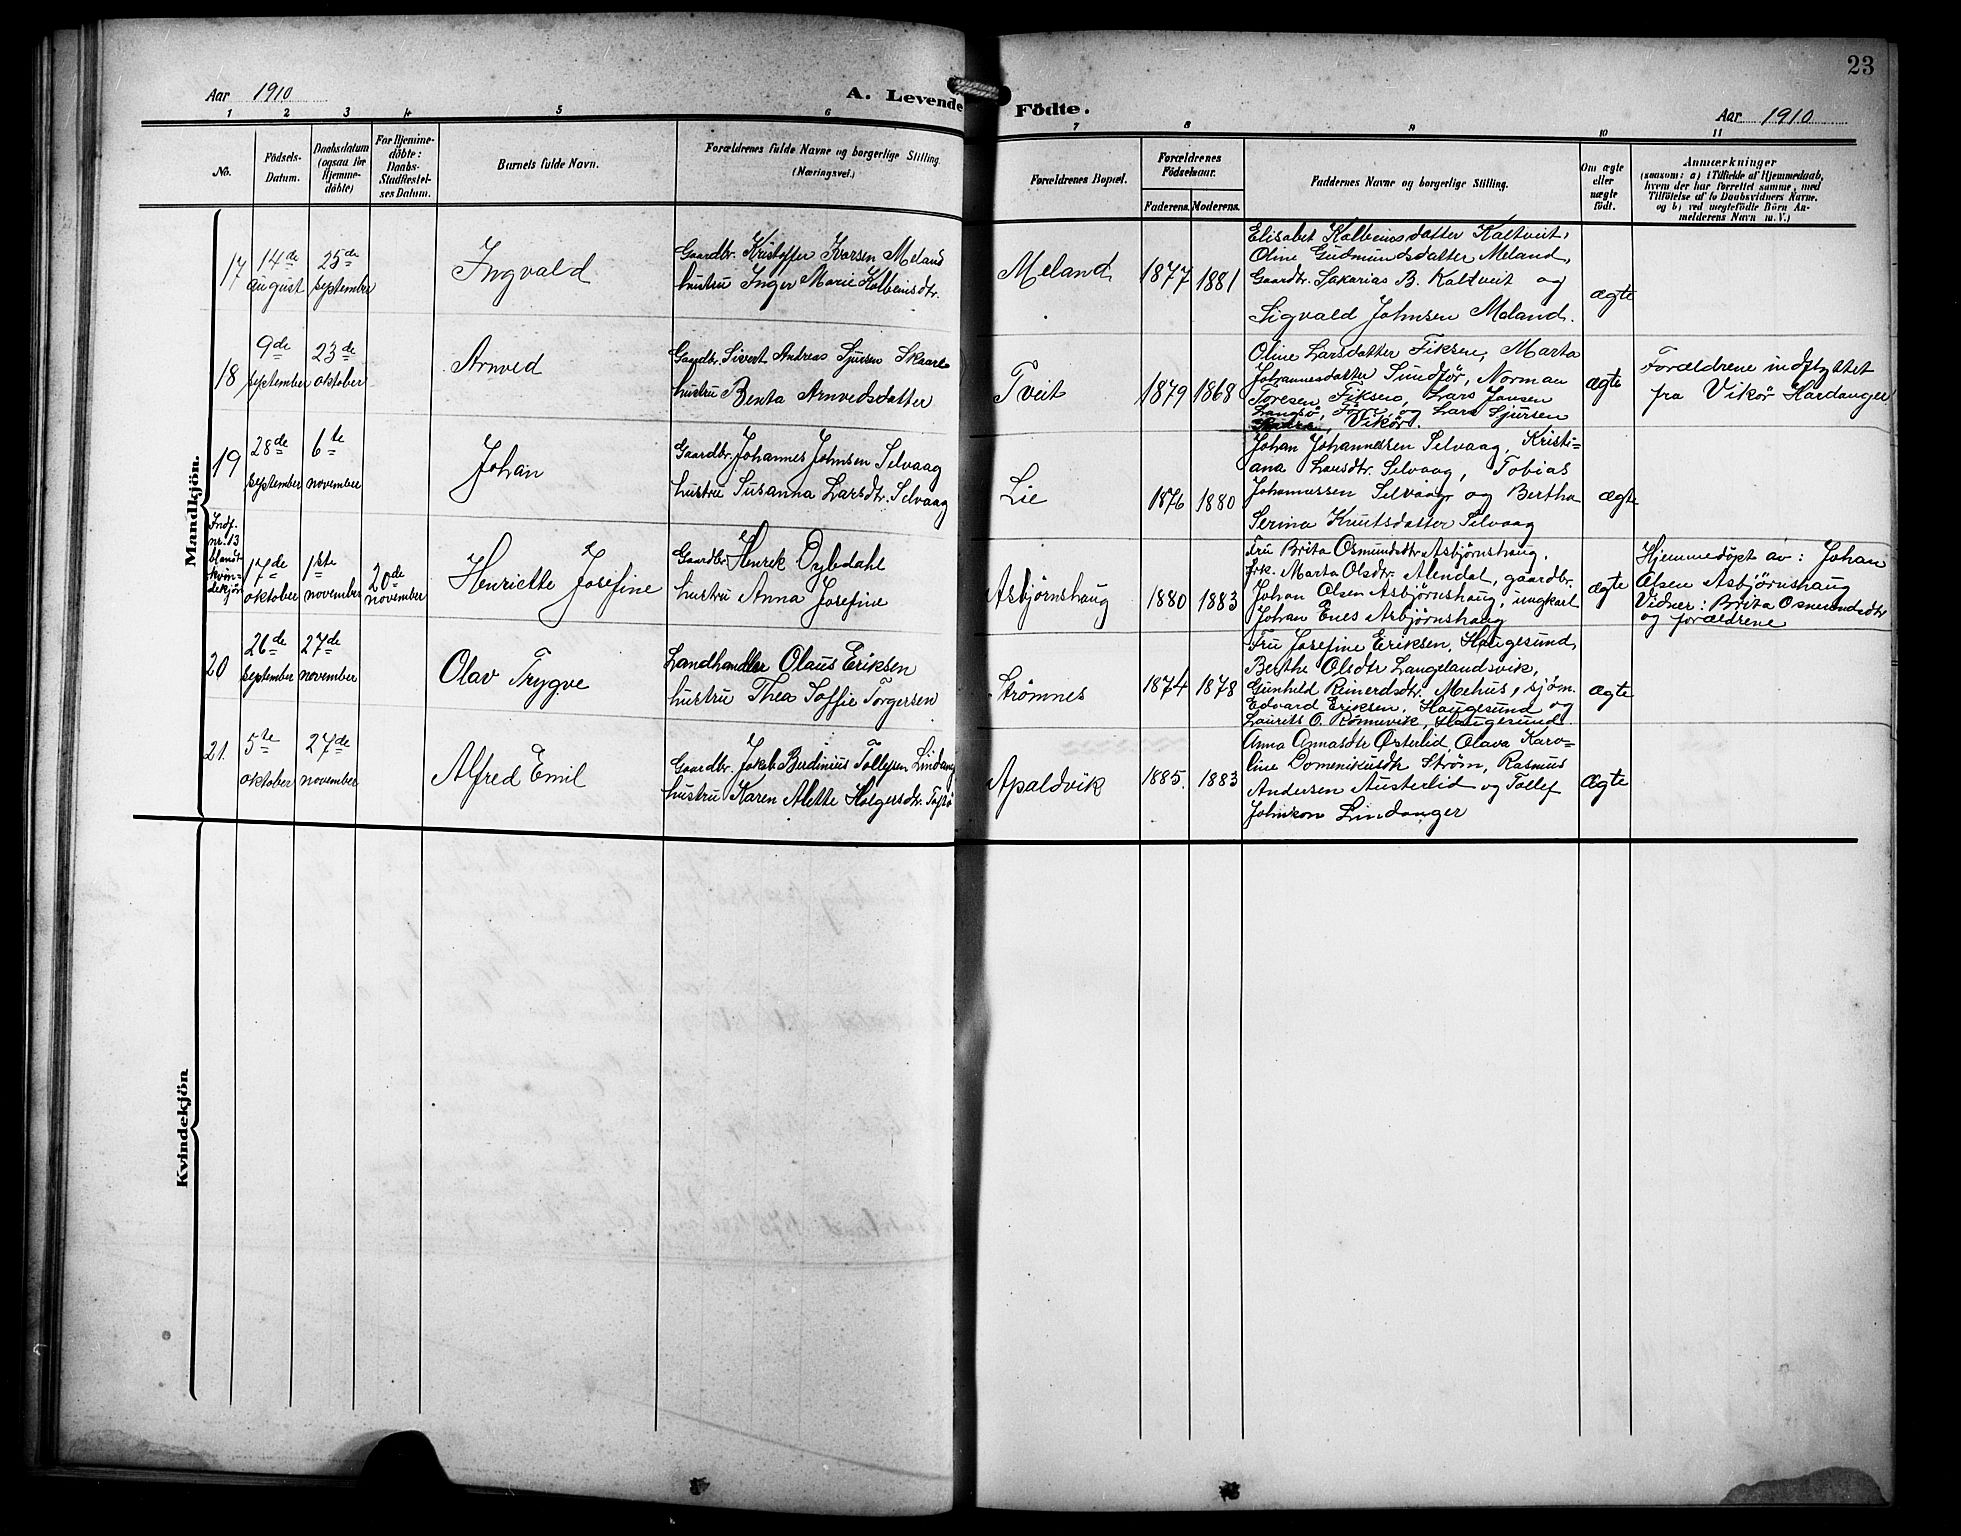 23
Aar 1910
A. Levende Födte.
Aar 1910
1 2 3 4 5 6 7 8 9 10 11
No.
Födsels-
Datum.
Daabsdatum
(ogsaa for
Hjemme-
döbte)
For Hjemme-
döbte:
Daabs-
Stadfæstel-
ses Datum.
Barnets fulde Navn.
Forældrenes fulde Navne og borgerlige Stilling.
(Næringsvei.)
Forældrenes Bopæl.
Forældrenes
Födselsaar.
Faderens. Moderens.
Faddernes Navne og borgerlige Stilling.
Om ægte
eller
uægte
födt.
Anmærkninger
(saasom: a) i Tilfælde af Hjemmedaab,
hvem der har forrettet samme, med
Tilföielse af to Daabsvidners Navne,
og b) ved uægtefödte Börn An-
melderens Navn m. V.)
Mandkjön.
17
14de
august
25de
september
Ingvald
Gaardbr. Kristoffer Iversen Meland
hustru Inger Marie Kolbeinsdtr.
Meland
1877 1881
Elisabet Kolbeinsdatter Kaltveit,
Oline Gudmundsdatter Meland,
Gaardbr. Sakarias B. Kaltveit og
Sigvald Johnsen Meland.
ægte
18
9de
september
23de
oktober
Arnved
Gaardbr. Sivert Andreas Sjursen Skaare
hustru Benta Arnvedsdatter
Tveit
1879 1868
Oline Larsdatter Fiksen, Marta
Johannesdatter Sundfør, Norman
Toresen Fiksen, Lars Jansen
og Lars Sjursen
Vikør.
ægte
Forældrene indflyttet
fra Vikør Hardanger
19
28de
september
6te
november
Johan
Gaardbr. Johannes Johnsen Selvaag
hustru Susanna Larsdtr. Selvaag
Lie
1876 1880
Johan Johannesen Selvaag, Kristi-
ana Larsdtr. Selvaag, Tobias
Johannessen Selvaag og Bertha
Serina Knutsdatter Selvaag
ægte
Indf.
nr. 13
blandt
kvin-
dekjön
17de
oktober
1ste
november
20de
november
Henriette Josefine
Gaardbr. Henrik Dybdahl
hustru Anna Josefine
Asbjørnshaug
1880 1883
Fru Brita Osmundsdtr Asbjørnshaug,
frk. Marta Olsdtr. Alendal, gaardbr.
Johan Olsen Asbjørnshaug, ungkarl
Johan Enes Asbjørnshaug
ægte
Hjemmedøpt av: Johan
Olsen Asbjørnshaug
Vidner: Brita Osmundsdtr
og forældrene
20
26de
september
27de
november
Olav Trygve
Landhandler Olaus Eriksen
hustru Thea Soffie Torgersen
Strømnes
1874 1878
Fru Josefine Eriksen, Haugesund,
Berthe Olsdtr Langelandsvik,
Gunhild Reinerdsdtr. Mehus, sjøm.
Edvard Eriksen, Haugesund og
Laurits O. Rønnevik, Haugesund.
ægte
21.
5te
oktober
27de
november
Alfred Emil
Gaardbr. Jakob Berdinius Tollefsen Lindang
hustru Karen Alette Holgersdtr. Toftø
Apaldvik
1885. 1883
Anna Annasdtr Østerlid, Olava Karo-
line Domenikusdtr Strøm, Rasmus
Andersen Austerlid og Tollef
Johnson Lindanger
Ægte
Kvindekjön